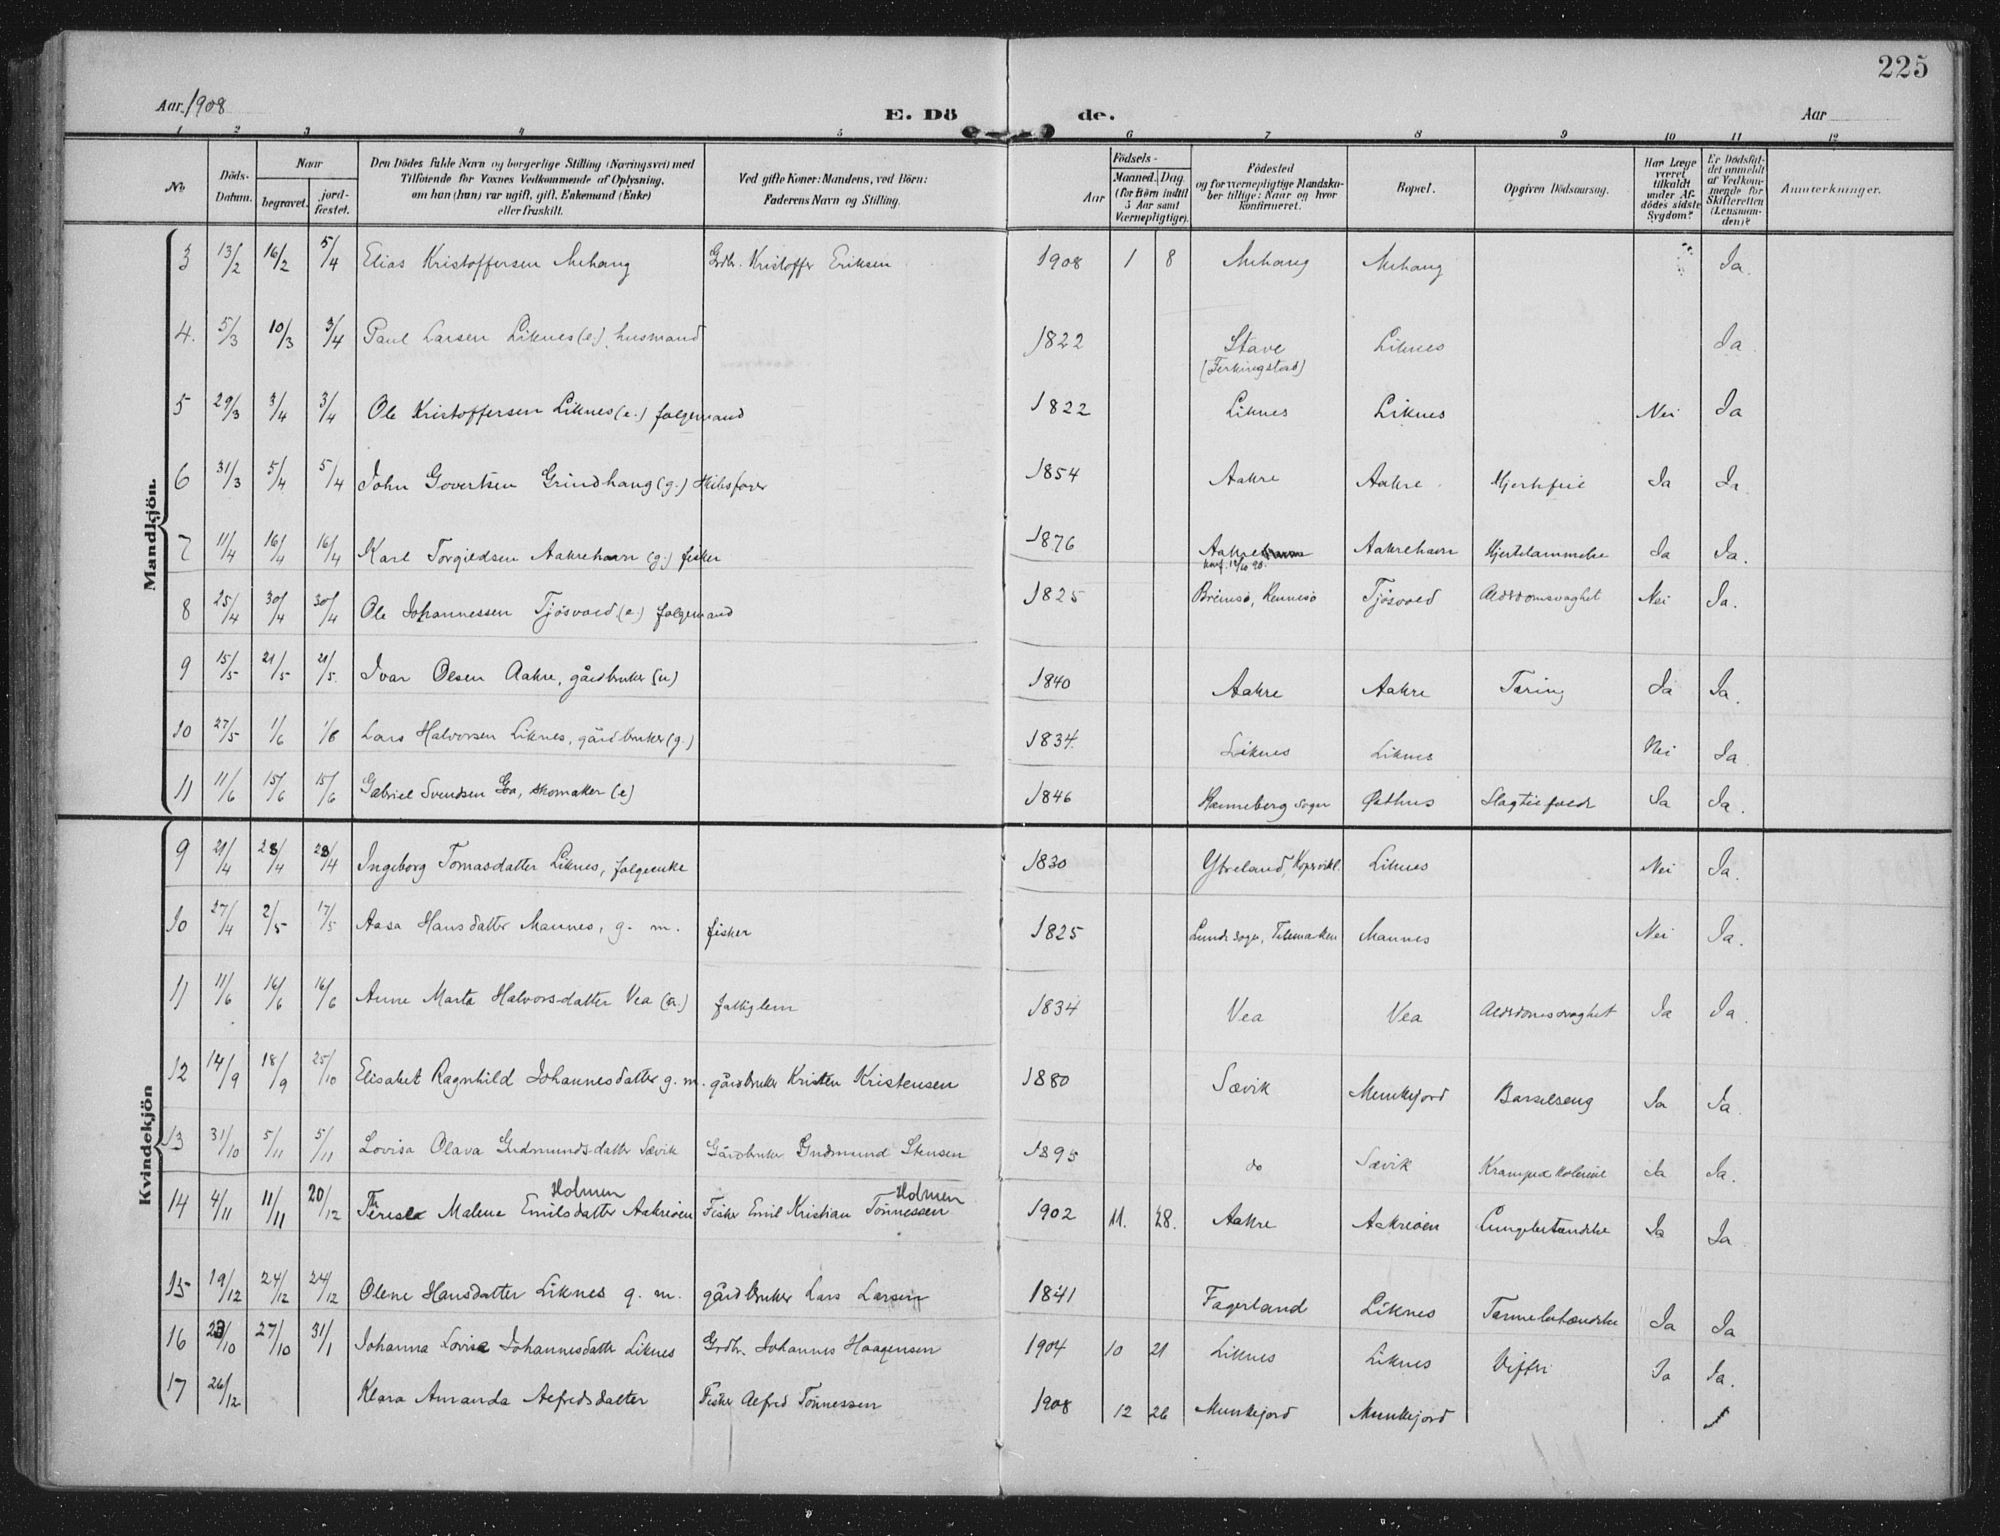 225
Aar 1908 E. Dö de. Aar
1 2 3 4 5 6 7 8 9 10 11 12
No Döds-Datum. Naar begravet. jordfæstet. Den Dödes fulde Navn og borgerlige Stilling (Næringsvei) med Tilföiende for Voxnes Vedkommende af Oplysning, om han (hun) var ugift, gift, Enkemand (Enke) eller fraskilt. Ved gifte Koner: Mandens, ved Börn: Faderens Navn og Stilling. Födsels- Aar Maaned. Dag. (for Börn indtil 5 Aar samt Værnepligtige). Födested og for værnepligtige Mandskaber tillige: Naar og hvor konfirmeret. Bopæl. Opgiven Dödsaarsag. Har Læge været tilkaldt under Afdödes sidste Sygdom? Er Dödsfaldet anmeldt af Vedkommende for Skifteretten (Lensmanden)? Anmerkninger.
Mandkjön.
3 13/2 16/2 5/4 Elias Kristoffersen Mehaug Grdbr. Kristoffer Eriksen 1908 1 8 Mehaug Mehaug Ja.
4. 5/3 10/3 3/4 Paul Larsen Liknes (e.), husmand 1822 Stave (Ferkingstad) Liknes Ja
5 29/3 3/4 3/4 Ole Kristoffersen Liknes (e.) folgemand 1822 Liknes Liknes Nei Ja
6 31/3 5/4 5/4 John Govertsen Grindhaug (g.) skibsfører 1854 Aakre Aakre Hjertefeil Ja Ja
7 11/4 16/4 16/4 Karl Torgildsen Aakrehavn (g.) fisker 1876 Aakre konf. 12/10 90. Aakrehavn Hjertelammelse Ja Ja.
8 25/4 30/4 30/4 Ole Johannessen Tjøsvold (e.) folgemand 1825 Brimsø, Rennesø Tjøsvold Alderdomsvaghet Nei Ja.
9 15/5 21/5 21/5. Ivar Olsen Aakre, gårdbruker (u) 1840 Aakre Aakre Tæring Ja Ja.
10 27/5 1/6 1/6 Lars Halvorsen Liknes, gårdbruker (g.) 1834. Liknes Liknes Nei Ja
11 11/6 15/6 15/6 Gabriel Svendsen Goa, skomaker (e) 1846 Østhus Slagtilfælde Ja Ja.
Kvindekjön
9 21/4 28/4 28/4 Ingeborg Tomasdatter Liknes, folgeenke 1830 Ytreland, Kopervik l. Liknes Nei Ja.
10 27/4 2/5 17/5 Aasa Hansdatter Mannes, g. m. fisker 1825 Lunde sogn, Telemarken Mannes Nei Ja.
11 11/6 16/6 16/6 Anne Marta Halvorsdatter Vea fattiglem 1834 Vea Vea Alderdomsvaghet Ja Ja.
12 14/9 18/9 25/10 Elisabet Ragnhild Johannesdatter g. m. gårdbruker Kristen Kristensen 1880 Sævik Munkejord Barselseng Ja Ja.
13 31/10 5/11 5/11 Lovisa Olava Gudmundsdatter Sævik Gårdbruker Gudmund Stensen 1895 do Sævik Ja Ja.
14 4/11 11/11 20/12 Therese Malene Emilsdatter Holmen Aakreøen Fisker Emil Kristian Tönnessen Holmen 1902 11. 28. Aakre Aakreøen Lungebetændelse Ja Ja
15 19/12 24/12 24/12 Olene Hansdatter Liknes g. m. gårdbruker Lars Larsen 1841 Fagerland Liknes Tarmebetændelse Ja Ja
16 23/10 27/10 31/1 Johanna Lovise Johannesdatter Liknes Grdbr. Johannes Haagensen 1904 10 21 Liknes Liknes Ja Ja.
17 26/12 Klara Amanda Alfredsdatter Fisker Alfred Tönnessen 1908 12 26 Munkejord Munkejord